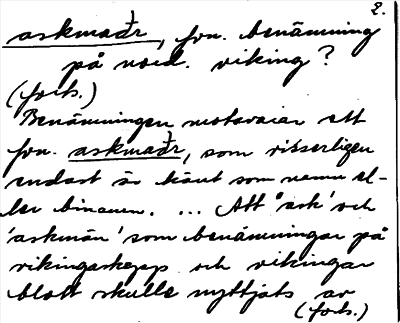 2.
askmaðr, fvn. benämning
på nord. viking?
(forts.)
Benämningen motsvarar ett
fvn. askmaðr, som visserligen
endast är känt som namn el-
ler binamn. ... Att 'ask' och
'askmän' som benämningar på
vikingaskepp och vikingar
blott skulle nyttjats av
(forts.)